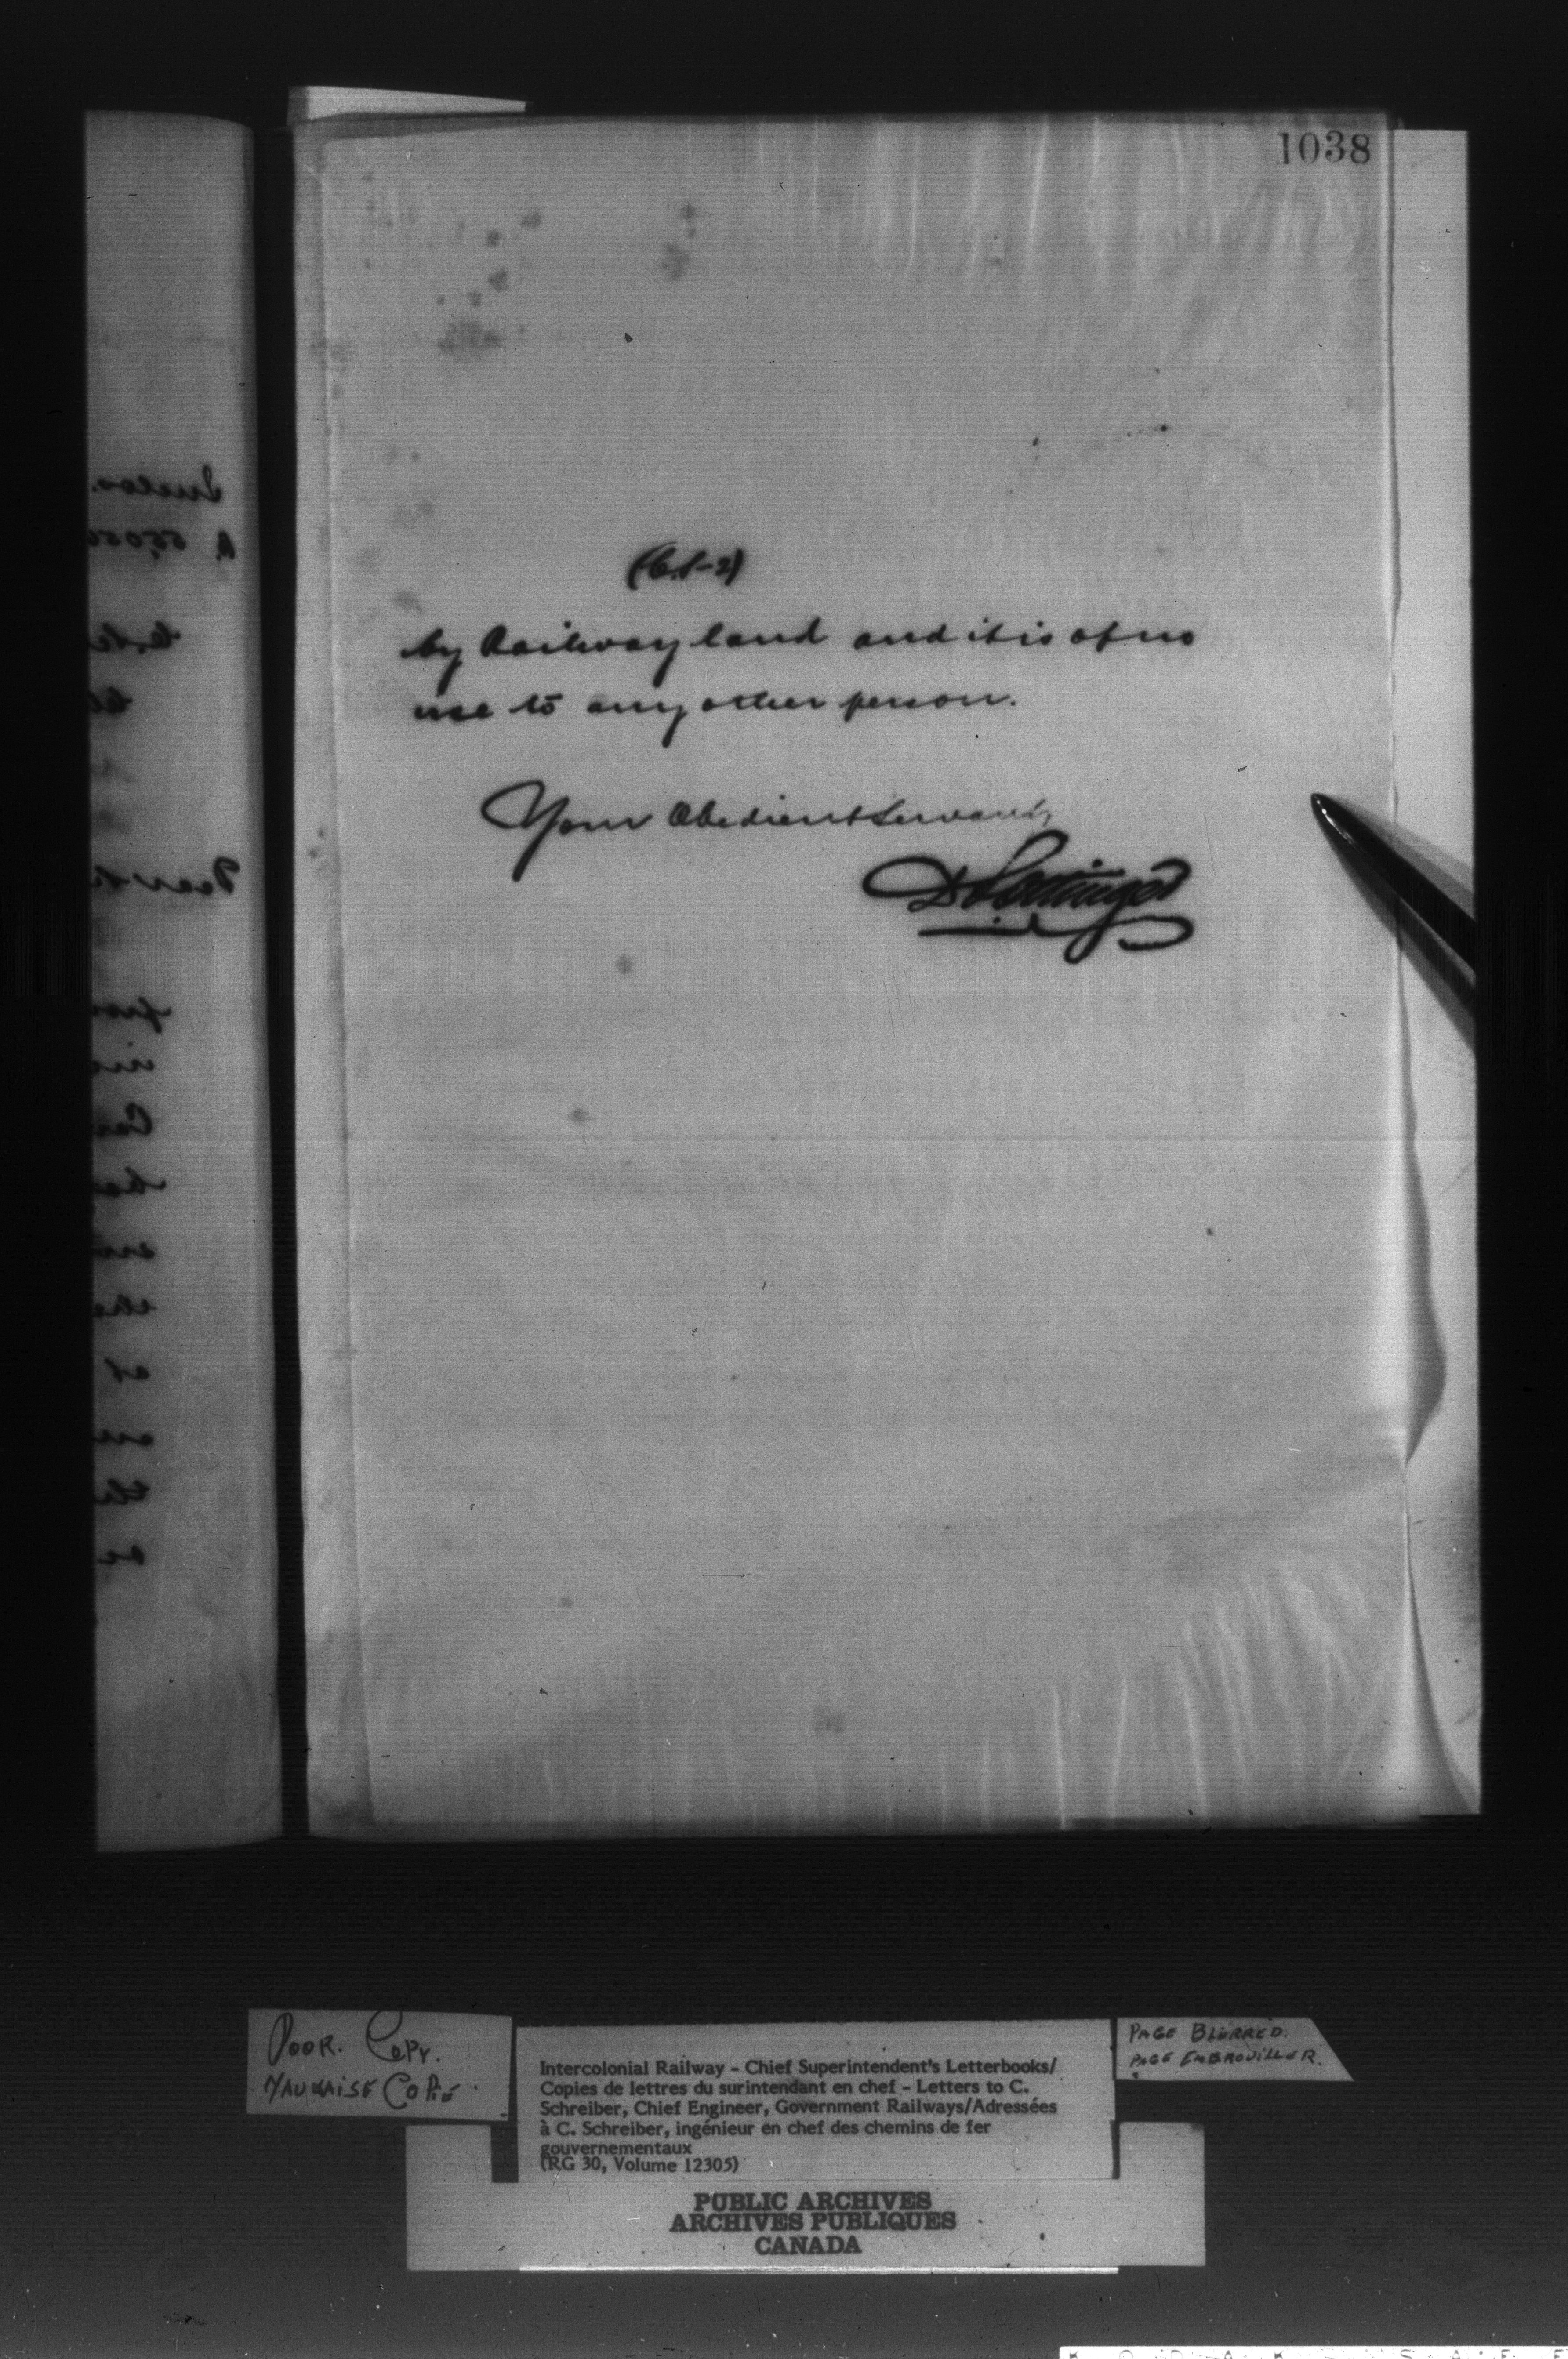 1038
by Railway land and it is of no
use to any other person.
Your Obedient Servant,
D Pottinger
POOR. COPY.
MAUVAISE COPIE.
Intercolonial Railway - Chief Superintendent's Letterbooks/
Copies de lettres du surintendant en chef - Letters to C.
Schreiber, Chief Engineer, Government Railways/Adressées
à C. Schreiber, ingénieur en chef des chemins de fer
gouvernementaux
(RG 30, Volume 12305)
PAGE BLURRED.
PAGE EMBROUILLER.
PUBLIC ARCHIVES
ARCHIVES PUBLIQUES
CANADA